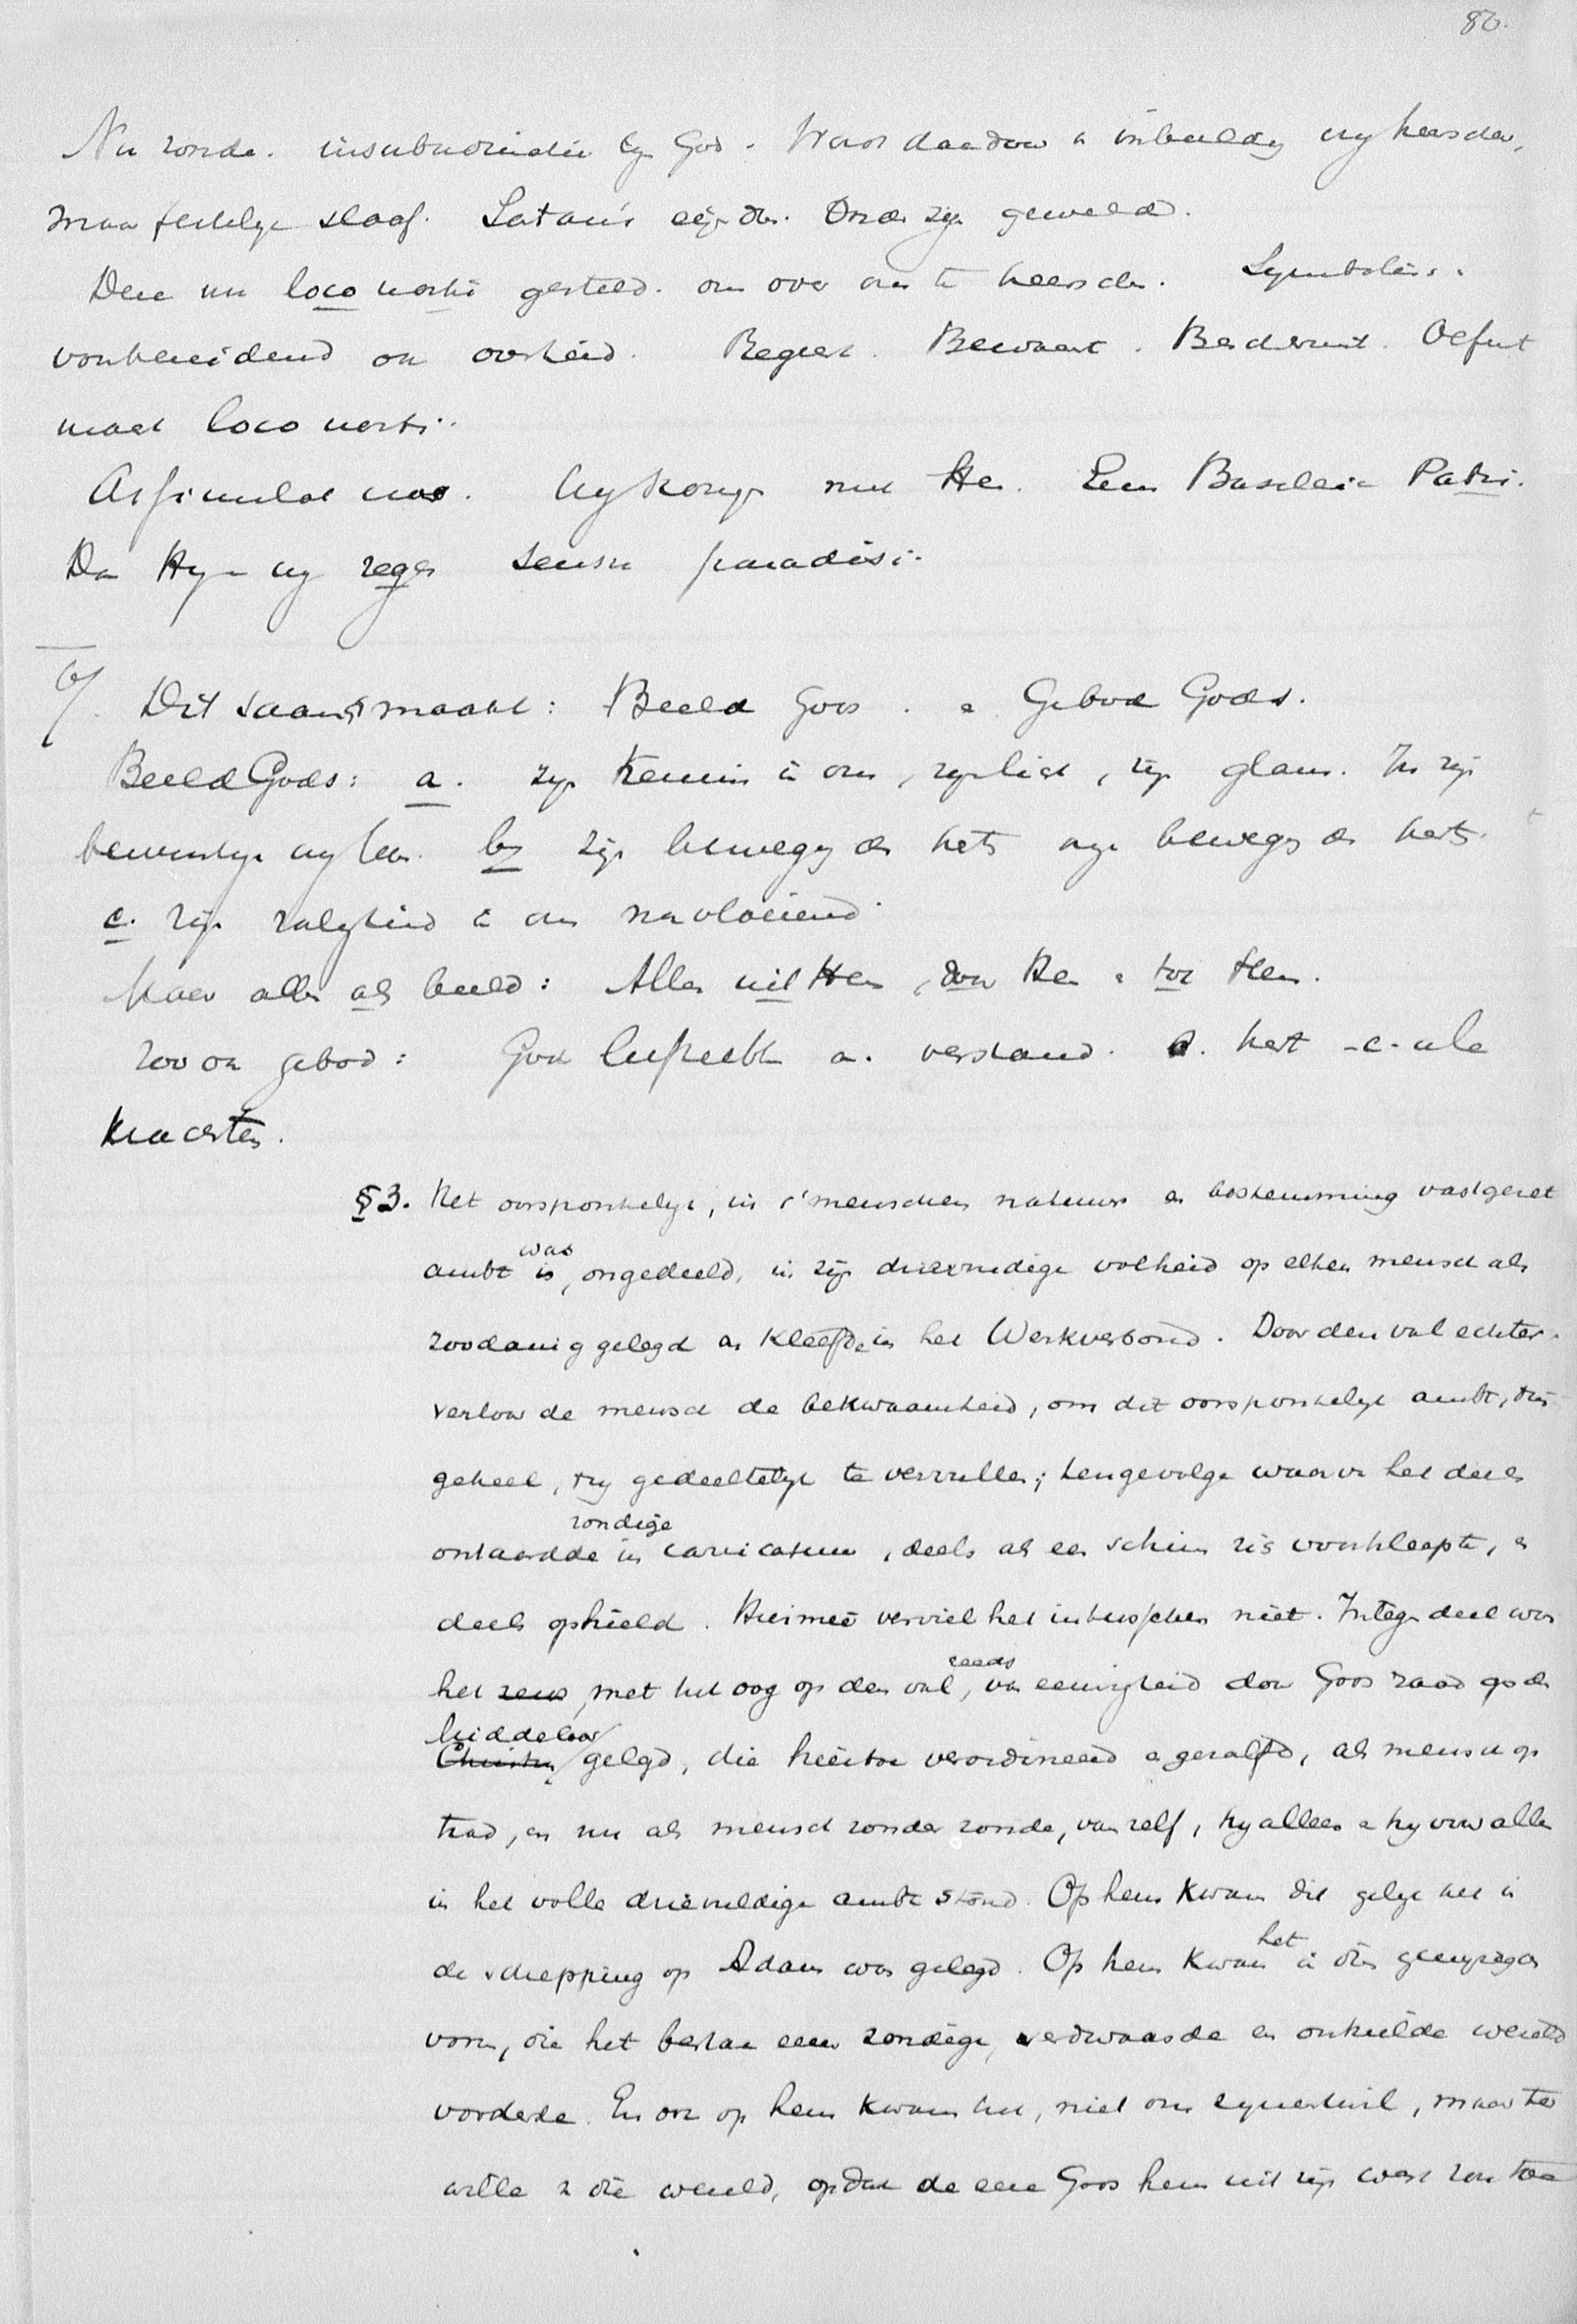 86.
Nu zonde. insubordinatie tgn God. Waar daardoor in inbeeldg wy heerscher,
maar feitelyk slaaf. Satan's eigendom. Onder zyn geweld.
Deze nu loco nostri gesteld. om over ons te heerschen. Symbolisch.
voorbereidend ook overheid. Regeert. Bewaart. Beschermt. Oefent
macht loco nostri.
Assimilat nos. Wy koningen met Hem. Een Basileia Patri.
Dan Hy en wy reges sensu paradisi.
b/ Dit saamgemaakt: Beeld Gods. en Gebod Gods.
Beeld Gods: a. zyn kennis in ons, zyn licht, zyn glans. In zyn
bewustzyn wy leven. b zyn beweging des harts onze beweging des harts.
c. zyn zaligheid in ons navloeiend.
Maar alles als beeld: Alles uit Hem, door Hem en tot Hem.
Zoo ook gebod: God liefhebben a. verstand. b. hart - c. alle
krachten.
§3. Het oorspronkelyk, in 's menschen natuur en bestemming vastgezet
ambt is was, ongedeeld, in zyn drievuldige volheid op elken mensch als
zoodanig gelegd en kleefde in het Werkverbond. Door den val echter
verloor de mensch de bekwaamheid, om dit oorspronkelyk ambt, 't zij
geheel, 't zy gedeeltelyk te vervullen; tengevolge waarvan het deels
ontaardde in zondige caricatuur, deels als een schim zich voortsleepte, en
deels ophield. Hiermeê verviel het intusschen niet. Integendeel was
het reeds, met het oog op den val, reeds van eeuwigheid door Gods raad op den
Christus Middelaar gelegd, die hiertoe verordineerd en gezalfd, als mensch op
trad, en nu als mensch zonder zonde, van zelf, hy alleen en hy voor allen
in het volle drievuldige ambt stond. Op hem kwam dit gelyk het in
de schepping op Adam was gelegd. Op hem kwam het in dien gewyzigden
vorm, die het bestaan eener zondige, verdwaasde en ontheilde wereld
vorderde. En ook op hem kwam het, niet om zynentwil, maar ter
wille van die wereld, opdat de eere Gods hem uit zyn werk zou toe